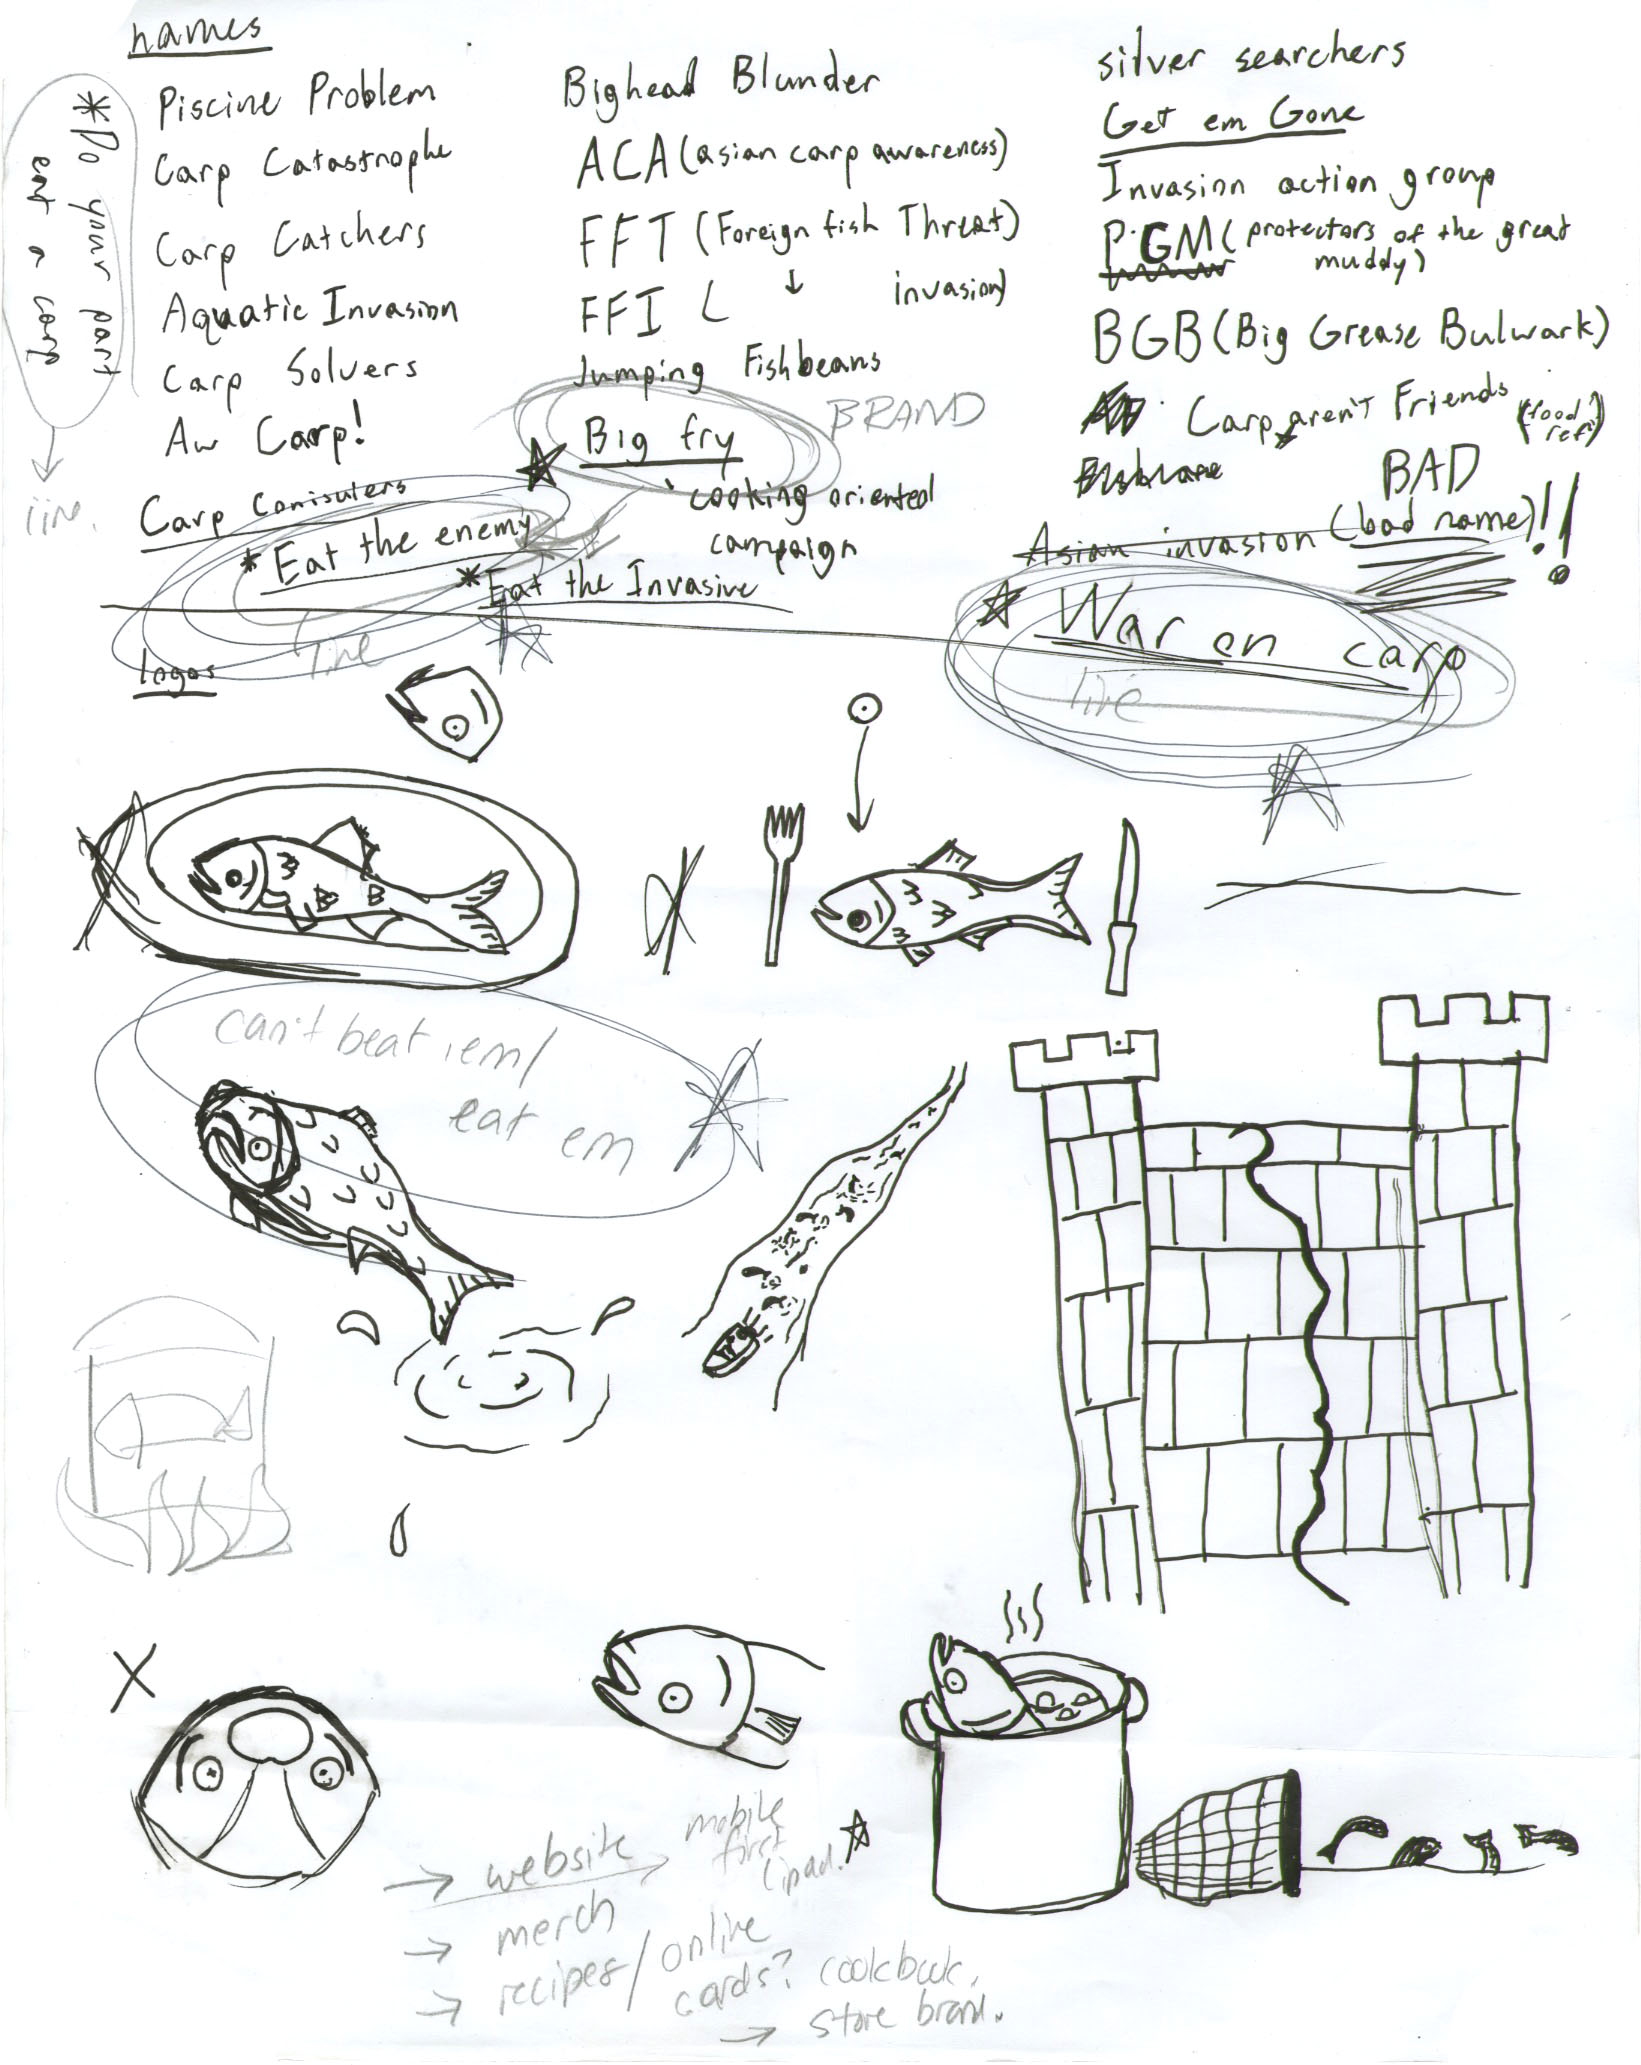 names
Piscine Problem
Carp Catastrophe
Carp Catchers
Aquatic Invasion
Carp Solvers
Aw Carp!
Carp Consulers
*Eat the enemy
*Eat the Invasive
line
*Do your part
eat a carp
line.
Bighead Blunder
ACA (asian carp awareness)
FFT (Foreign fish Threat)
FFI ( ↓ invasion)
Jumping Fishbeans
Big fry
BRAND
cooking oriented
campaign
silver searchers
Get em Gone
Invasion action group
PGM (protectors of the great
muddy)
BGB (Big Grease Bulwark)
Carp aren't Friends (food
ref)
BAD
Asian invasion (bad name)!!
War on carp
line
logos
can't beat em/
eat em
→ website → mobile
first
ipad.
→ merch
→ recipes/online
cards? cookbook,
→ store brand.